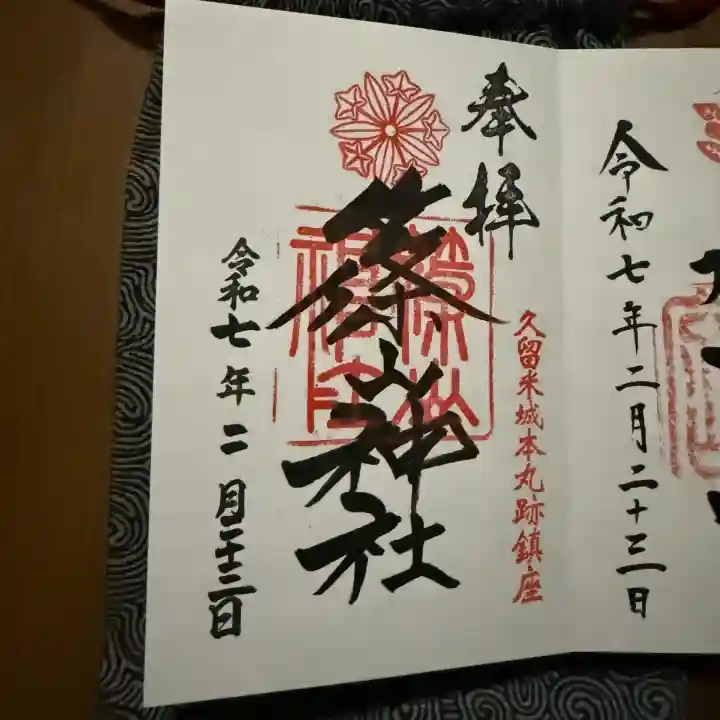 令和七年二月二十三日
奉拝
久留米城本丸跡鎮座
篠山神社
令和七年二月二十三日